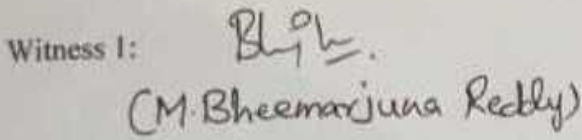 Witness 1:
(M. Bheemarjuna Reddy)